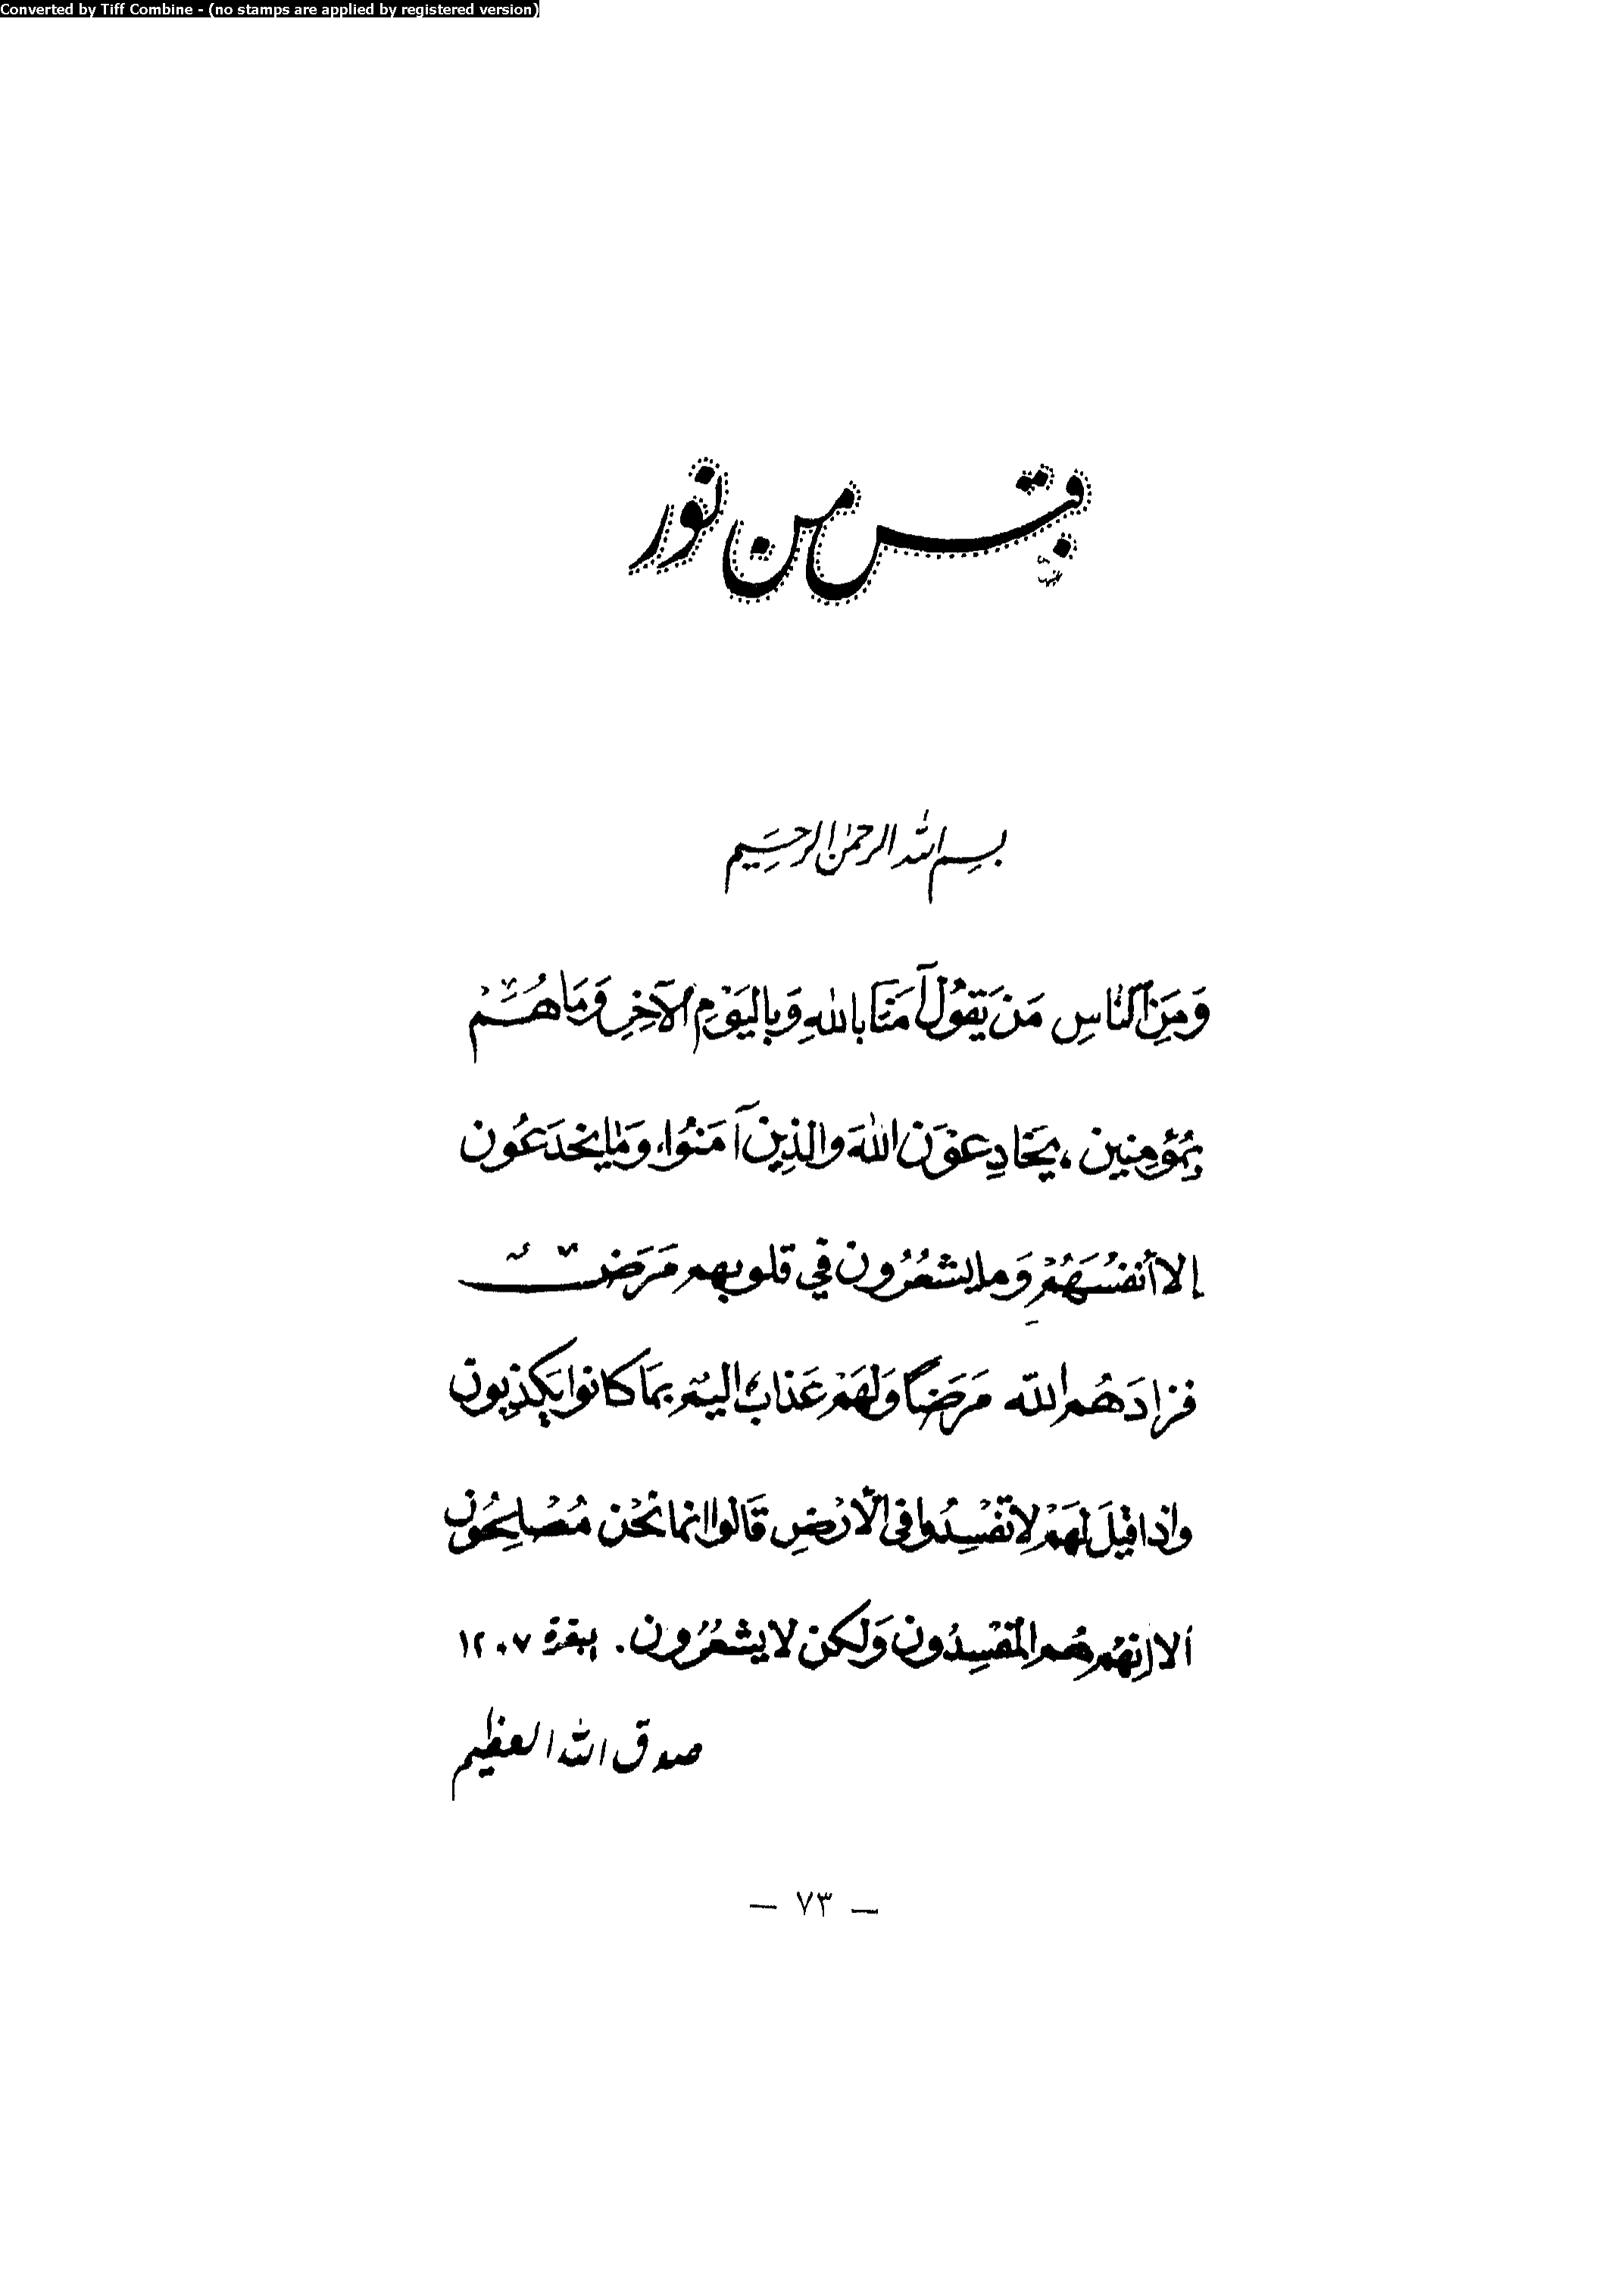 Converted by Tiff Combine - (no stamps are applied by registered version)
قبس من نور
بسم الله الرحمن الرحيم
وَمِنَ النَّاسِ مَن يَقُولُ آمَنَّا بِاللهِ وَبِاليَوْمِ الآخِرِ وَمَا هُمْ
بِمُؤمِنين، يخَادِعوْنَ اللهَ والذِينَ آمَنُوا، وَمَا يخدَعُون
إلا أنفسُهَمُْ وَما يشعُرُون في قلوبهم مَرَضٌ
فزادَهُم الله مَرَضاً وَلهَمْ عَذابٌ اليمٌ بمَا كانوا يَكذِبون
واذا قيْلَ لهَمْ لا تفْسِدُوا في الأرْضِ قَالوا انما نحْن مُصْلِحُون
ألا إنهُم هُم المفْسِدُون وَلكن لا يشعُرُون. بقرة ٧ـ١٢
صدق الله العظيم
— ٧٣ —